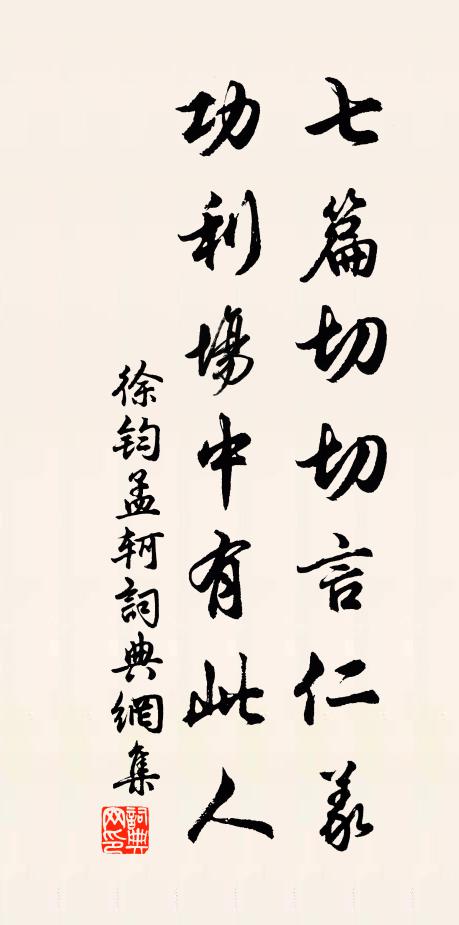 七篇切切言仁義
功利場中有此人
徐鈞孟軻詞典網集
詞典
网印